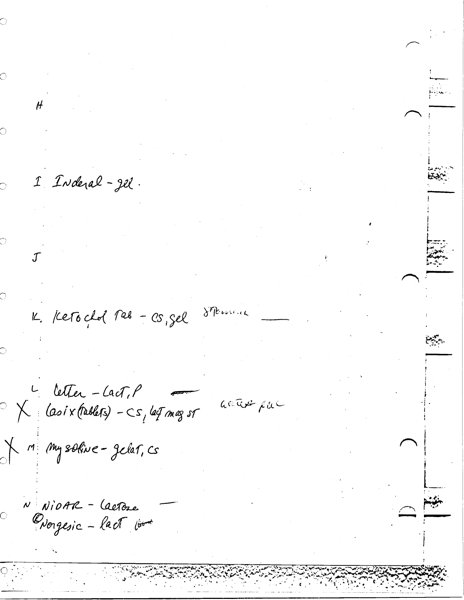 H
I Inderal - gel.
J
K. Ketochol Tab - CS, gel
L Letter - Lact, P
X Lasix (Tablets) - CS, lact mag st
X M Mysoline - gelat, CS
N NIDAR - Lactose
© Norgesic - lact